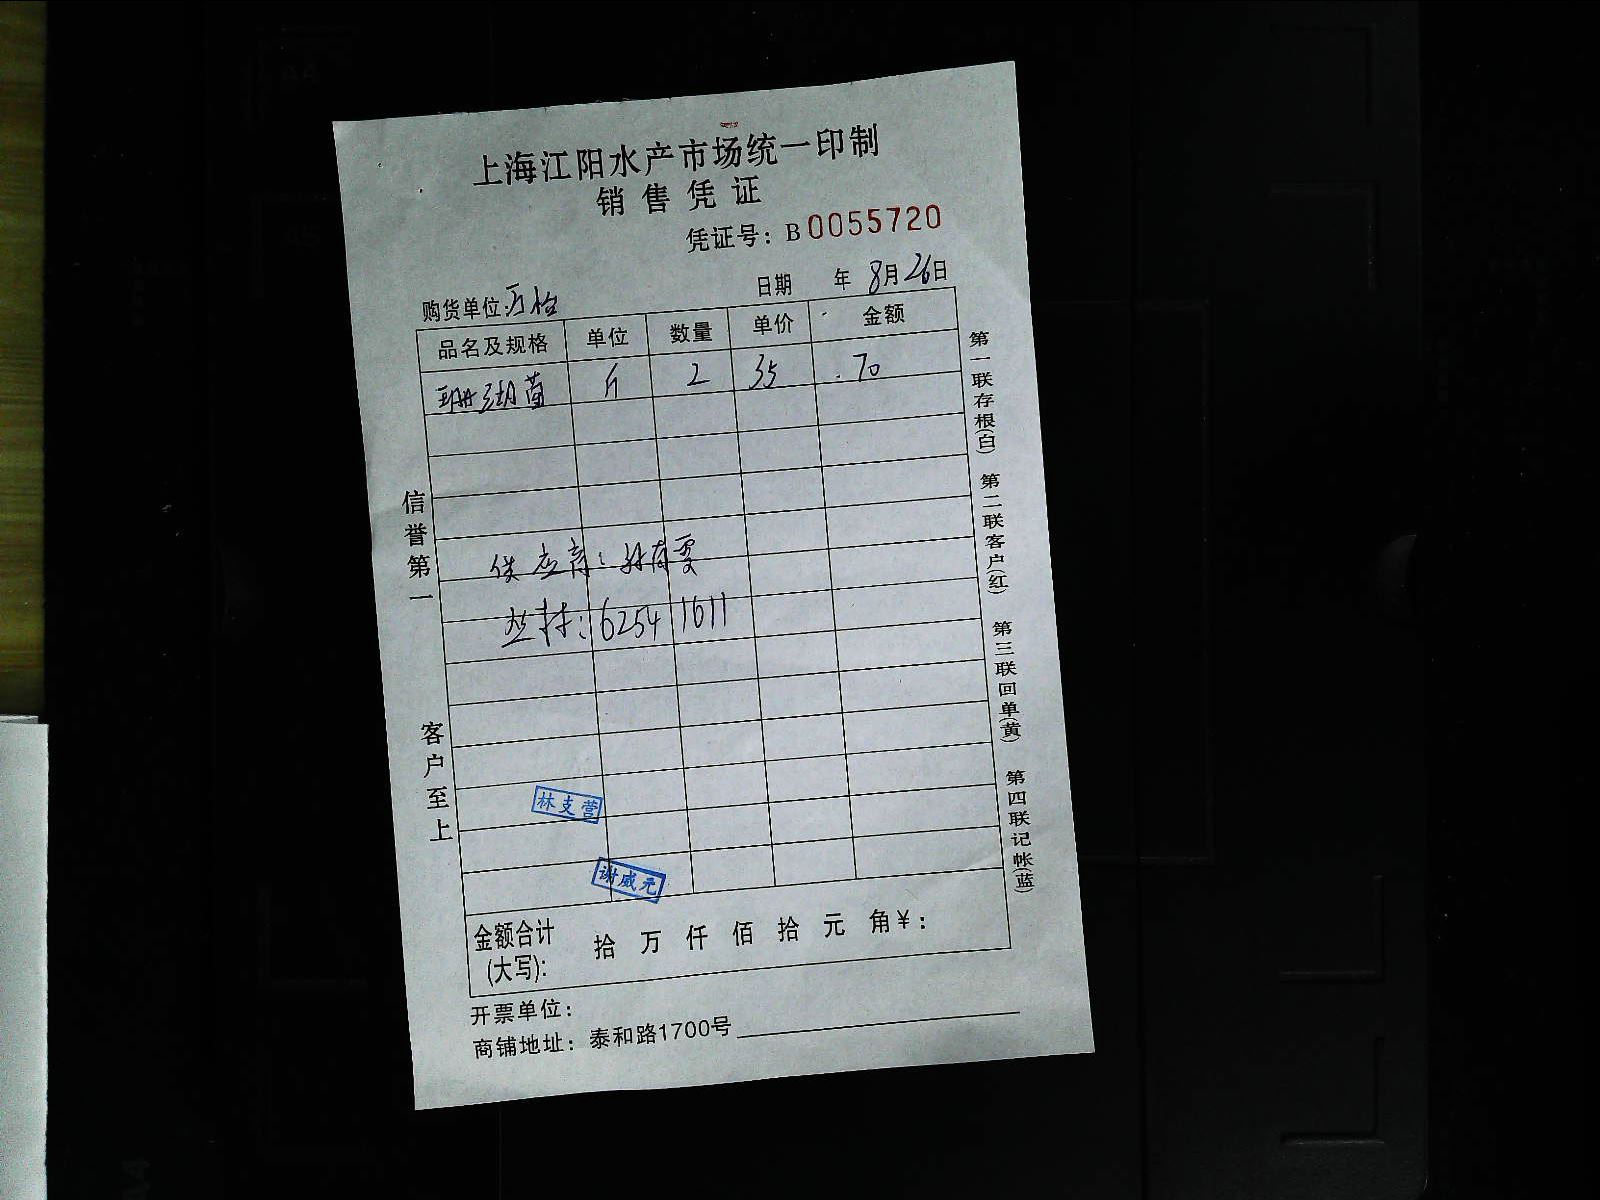 上海江阳水产市场统一印制
销售凭证
凭证号：B0055720
购货单位：万怡
日期 年 8月26日
品名及规格 单位 数量 单价 金额
珊瑚菌 斤 2 35 70
供应商：
62541611
林支营
谢威元
金额合计
(大写): 拾 万 仟 佰 拾 元 角 ¥：
开票单位：
商铺地址：泰和路1700号
信誉第一 客户至上
第一联存根(白) 第二联客户(红) 第三联回单(黄) 第四联记帐(蓝)